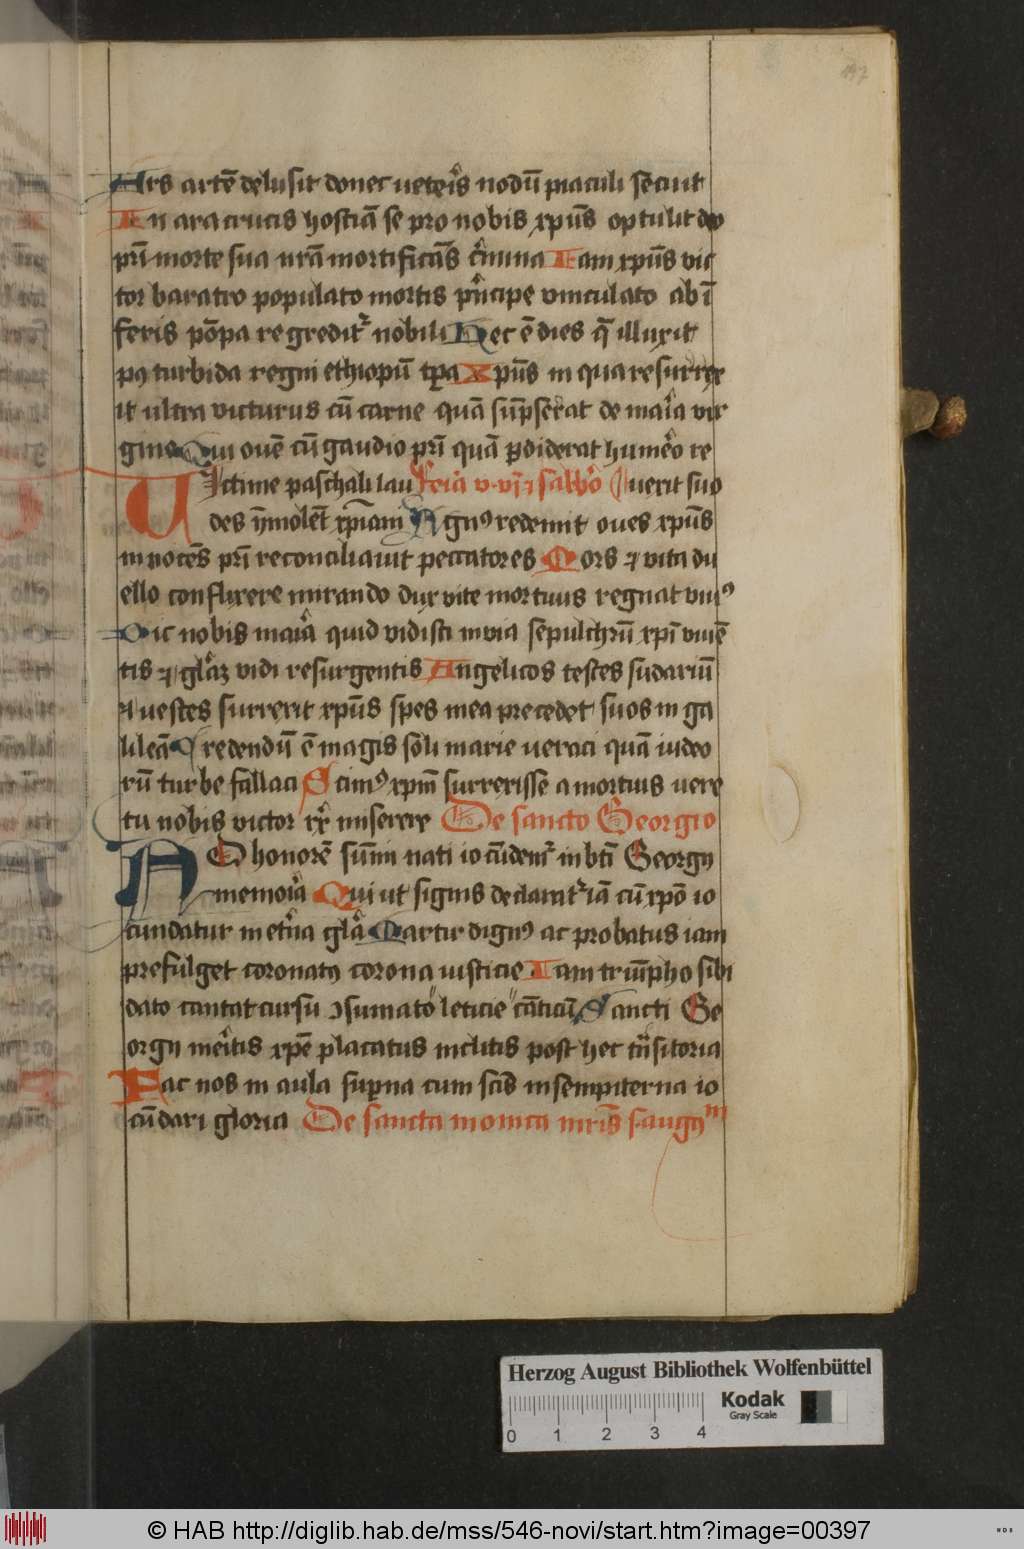 197
Ars artē delusit donec veteris nodū piaculi secuit
In ara crucis hostiā se pro nobis xpūs optulit deo
pri morte sua nrā mortificās cimina Iam xpūs vic
tor baratro populato mortis pncipe vinculato ab ī
feris pōpa regredit nobili Hec ē dies q̄ illuxit
turbida regni ethiopū tpa Xpūs in qua resurrex
it ultra victurus cū carne quā sūpserat de maia vir
gine Qui ovē cū gaudio pri quā pdiderat humeo re
Victime paschali lau feria v. vi et sabbo vexit suo
des ymolēt xpiani Agnꝰ redemit oves xpūs
innocēs pri reconciliavit peccatores Mors ⁊ vita du
ello conflixere mirando dux vite mortuus regnat vivꝰ
Dic nobis maia quid vidisti in via sepulchrū xpi vivē
tis ⁊ glaꝫ vidi resurgentis Angelicos testes sudariū
⁊ vestes surrexit xpūs spes mea precedet suos in ga
lileā Credendū ē magis soli marie veraci quā iudeo
rū turbe fallaci Scimꝰ xpm surrexisse a mortuis vere
tu nobis victor rex miserere De sancto Georgio
AD honorē sūmi nati iocūdemr in bti Georgii
memoia Qui ut signis declarat iā cū xpo io
cundatur in etna gla Martir dignꝰ ac probatus iam
prefulget coronatꝰ corona iusticie Iam triūpho sibi
dato cantat cursu ↄsumato leticie cāticū Sancti Ge
orgii meitis xpe placatus inclitis post hec tnsitoria
Fac nos in aula supna cum scis in sempiterna io
cūdari gloria De sancta monica mris s augꝰⁿⁱ
Herzog August Bibliothek Wolfenbüttel
Kodak
Gray Scale
0 1 2 3 4
© HAB http://diglib.hab.de/mss/546-novi/start.htm?image=00397